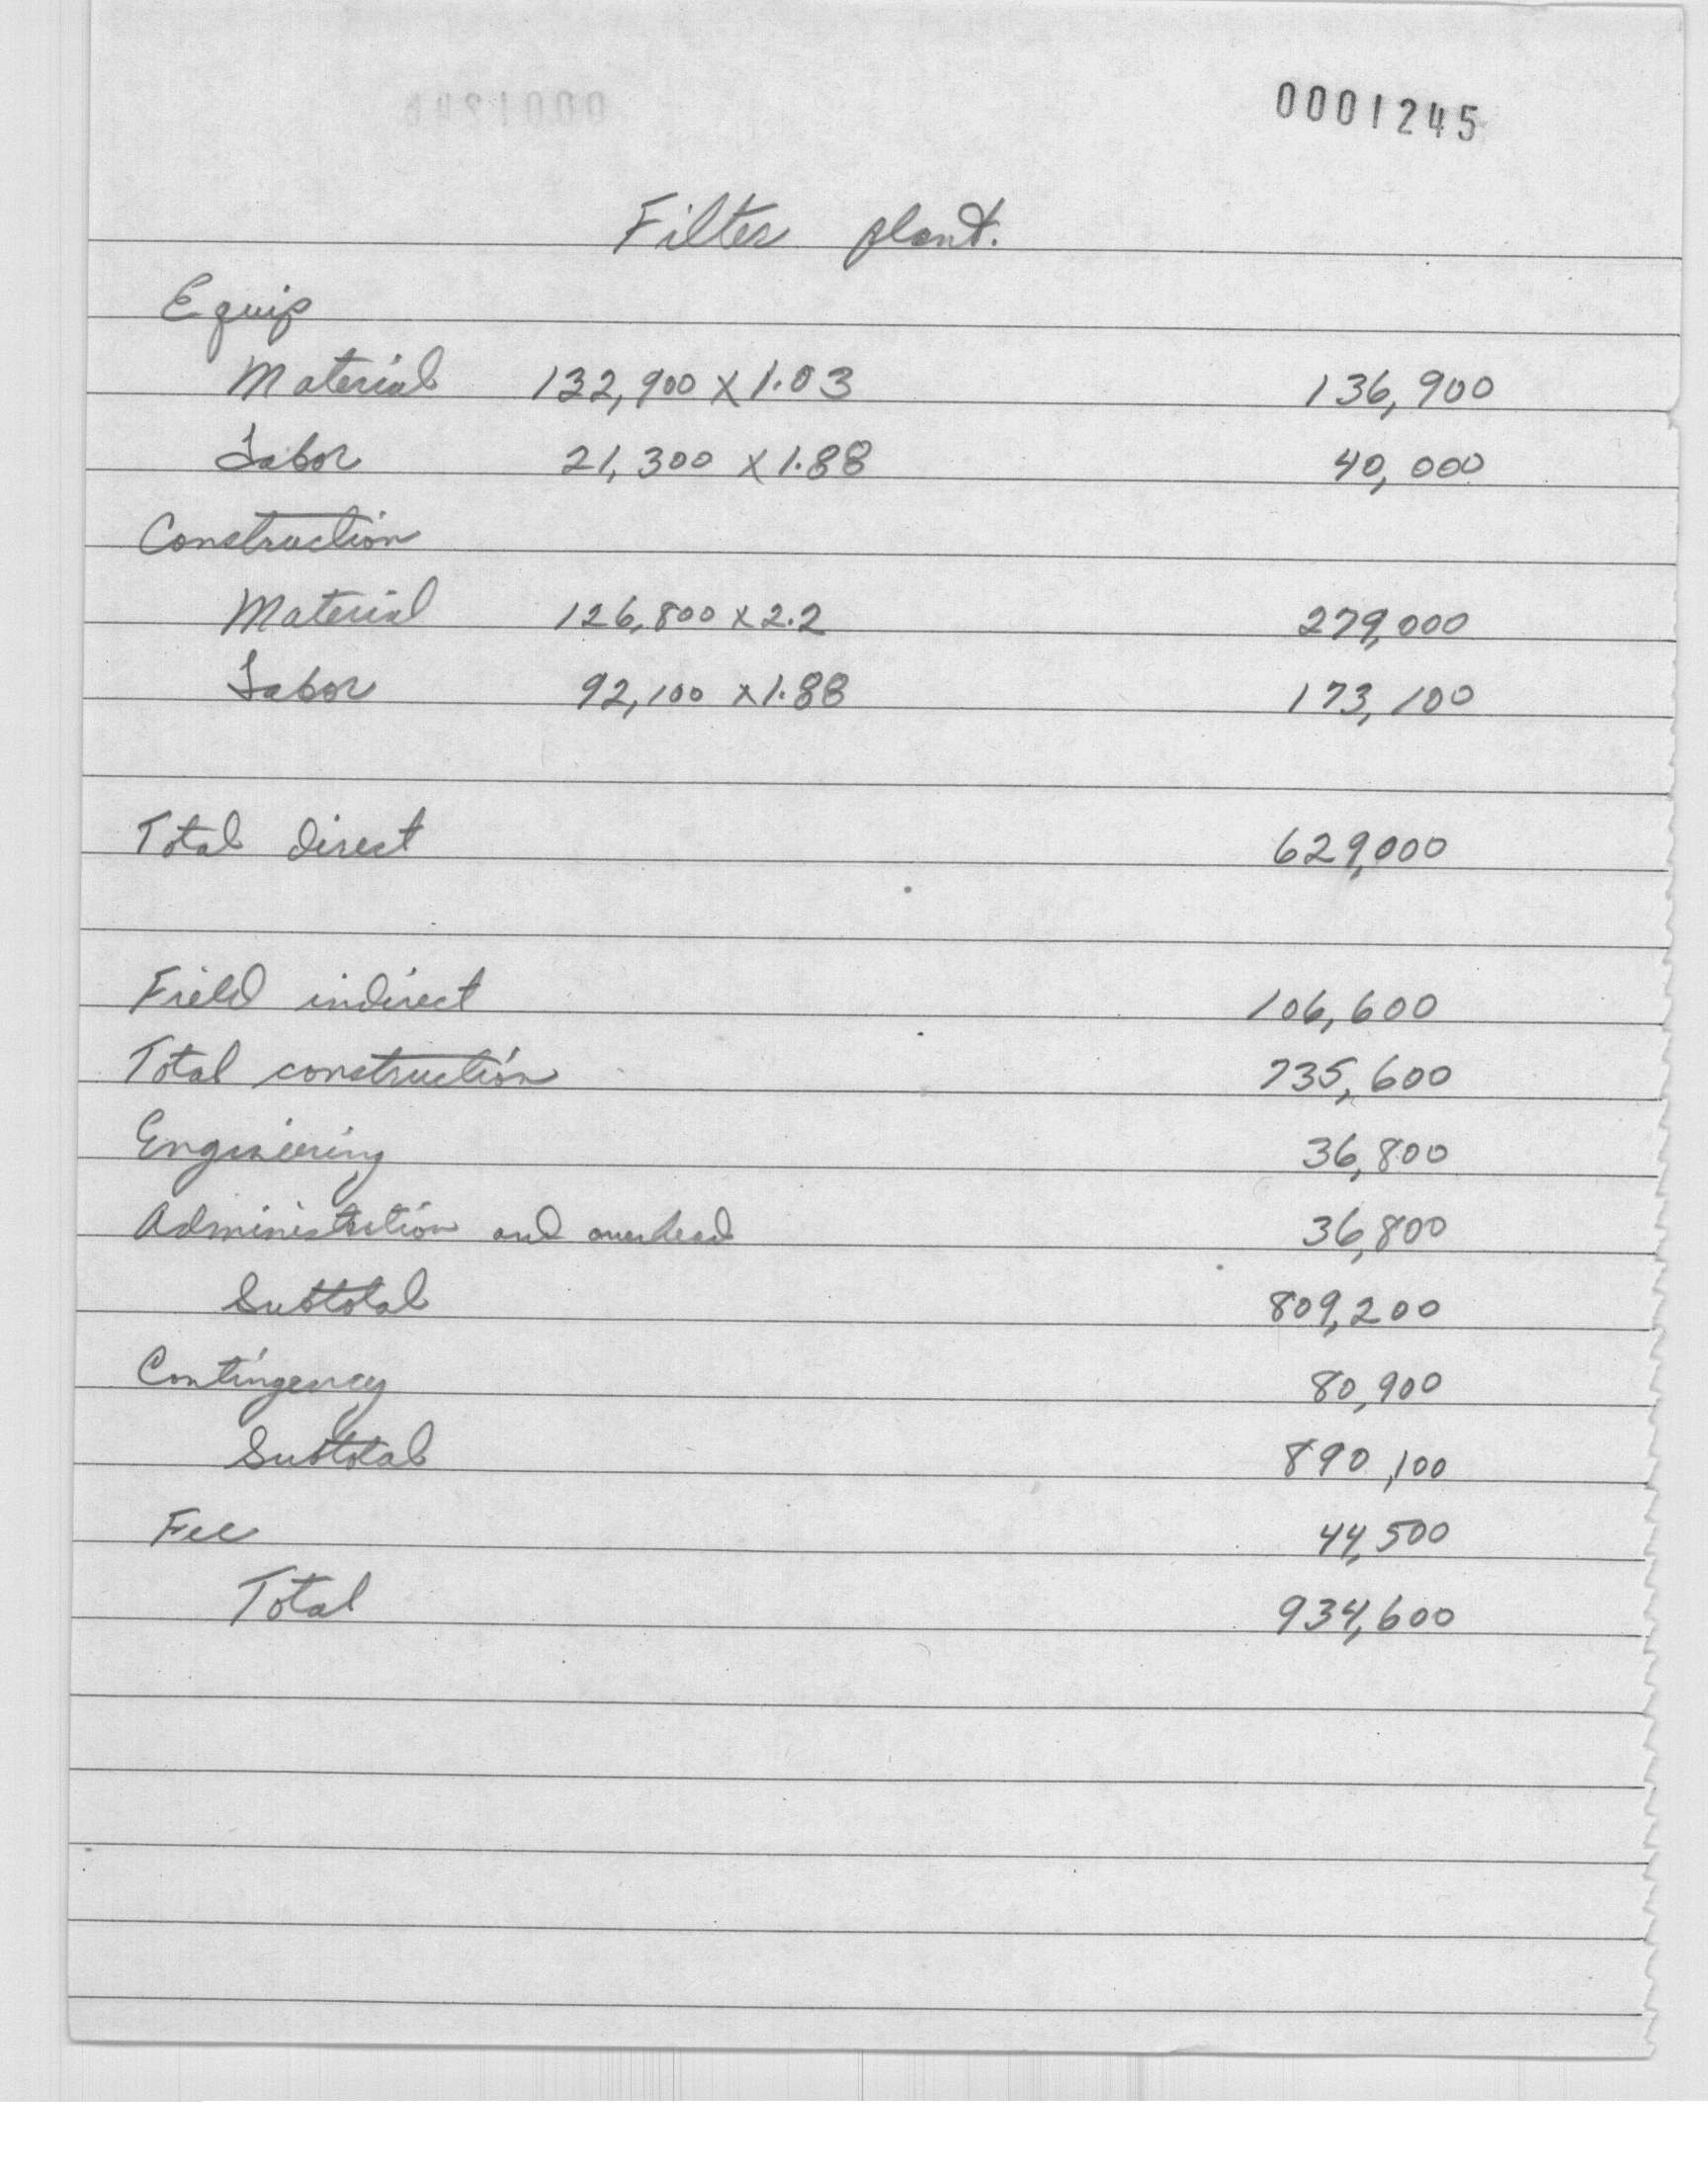 0001245
Filter plant.
Equip
Material 132,900 X 1.03 136,900
Labor 21,300 X 1.88 40,000
Construction
Material 126,800 x 2.2 279,000
Labor 92,100 x 1.88 173,100
Total direct 629,000
Field indirect 106,600
Total construction 735,600
Engineering 36,800
Administration and overhead 36,800
Subtotal 809,200
Contingency 80,900
Subtotal 890,100
Fee 44,500
Total 934,600